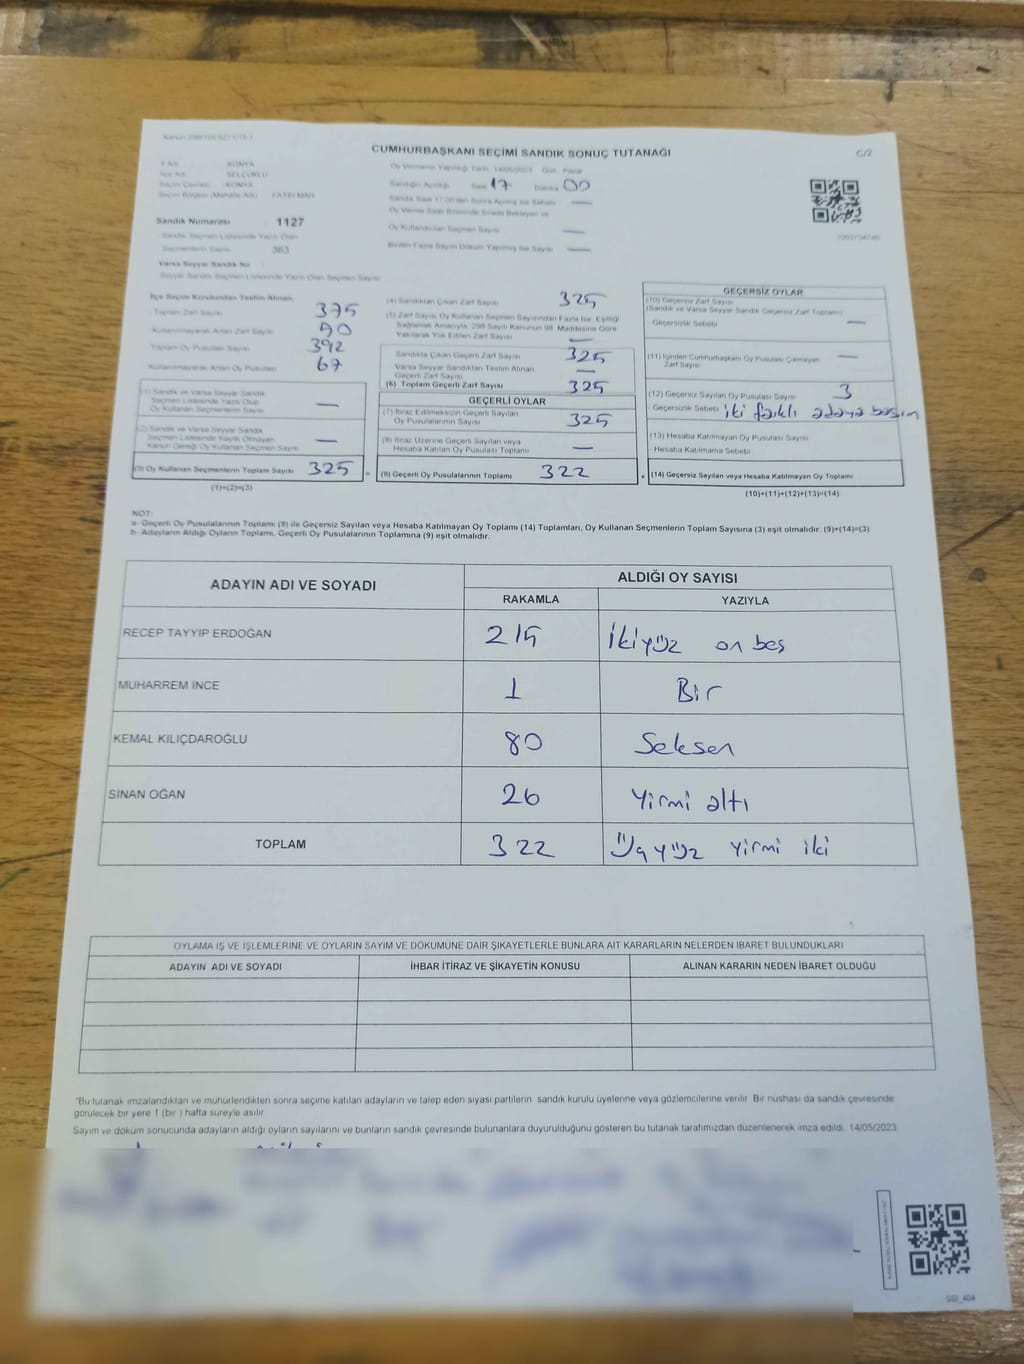 Kanun
CUMHURBAŞKANI SEÇİMİ SANDIK SONUÇ TUTANAĞI
C/2
İl Adı KONYA
İlçe Adı SELÇUKLU
Seçim Çevresi KONYA
Seçim Bölgesi (Mahalle Adı) FATİH MAH
Sandık Numarası : 1127
Sandık Seçmen Listesinde Yazılı Olan
Seçmenlerin Sayısı 363
Varsa Seyyar Sandık No
Seyyar Sandık Seçmen Listesinde Yazılı Olan Seçmen Sayısı
Oy Vermenin Yapıldığı Tarih 14/05/2023 Gün Pazar
Sandığın Açıldığı Saat 17 Dakika 00
Sandık Saat 17:00'den Sonra Açılmış İse Sebebi —
Oy Verme Saati Bitiminde Sırada Bekleyen ve
Oy Kullandırılan Seçmen Sayısı —
Birden Fazla Sayım Döküm Yapılmış İse Sayısı —
İlçe Seçim Kurulundan Teslim Alınan;
Toplam Zarf Sayısı 375
Kullanılmayarak Artan Zarf Sayısı
Toplam Oy Pusulası Sayısı 392
Kullanılmayarak Artan Oy Pusulası 67
(1) Sandık ve Varsa Seyyar Sandık
Seçmen Listesinde Yazılı Olup
Oy Kullanan Seçmenlerin Sayısı —
(2) Sandık ve Varsa Seyyar Sandık
Seçmen Listesinde Kayıtlı Olmayan
Kanun Gereği Oy Kullanan Seçmen Sayısı —
(3) Oy Kullanan Seçmenlerin Toplam Sayısı 325
(1)+(2)=(3)
(4) Sandıktan Çıkan Zarf Sayısı 325
(5) Zarf Sayısı Oy Kullanan Seçmen Sayısından Fazla İse, Eşitliği
Sağlamak Amacıyla, 298 Sayılı Kanunun 98. Maddesine Göre
Yakılarak Yok Edilen Zarf Sayısı —
Sandıkta Çıkan Geçerli Zarf Sayısı 325
Varsa Seyyar Sandıktan Teslim Alınan
Geçerli Zarf Sayısı —
(6) Toplam Geçerli Zarf Sayısı 325
GEÇERLİ OYLAR
(7) İtiraz Edilmeksizin Geçerli Sayılan
Oy Pusulalarının Sayısı 325
(8) İtiraz Üzerine Geçerli Sayılan veya
Hesaba Katılan Oy Pusulası Toplamı —
(9) Geçerli Oy Pusulalarının Toplamı 322
GEÇERSİZ OYLAR
(10) Geçersiz Zarf Sayısı
(Sandık ve Varsa Seyyar Sandık Geçersiz Zarf Toplamı)
Geçersizlik Sebebi —
(11) İçinden Cumhurbaşkanı Oy Pusulası Çıkmayan
Zarf Sayısı —
(12) Geçersiz Sayılan Oy Pusulası Sayısı 3
Geçersizlik Sebebi iki farklı adaya basım
(13) Hesaba Katılmayan Oy Pusulası Sayısı
Hesaba Katılmama Sebebi
(14) Geçersiz Sayılan veya Hesaba Katılmayan Oy Toplamı
(10)+(11)+(12)+(13)=(14)
NOT:
a- Geçerli Oy Pusulalarının Toplamı (9) ile Geçersiz Sayılan veya Hesaba Katılmayan Oy Toplamı (14) Toplamları, Oy Kullanan Seçmenlerin Toplam Sayısına (3) eşit olmalıdır. (9)+(14)=(3)
b- Adayların Aldığı Oyların Toplamı, Geçerli Oy Pusulalarının Toplamına (9) eşit olmalıdır.
ADAYIN ADI VE SOYADI
ALDIĞI OY SAYISI
RAKAMLA YAZIYLA
RECEP TAYYİP ERDOĞAN 215 İkiyüz on beş
MUHARREM İNCE 1 Bir
KEMAL KILIÇDAROĞLU 80 Seksen
SİNAN OĞAN 26 Yirmi altı
TOPLAM 322 Üçyüz yirmi iki
OYLAMA İŞ VE İŞLEMLERİNE VE OYLARIN SAYIM VE DÖKÜMÜNE DAİR ŞİKAYETLERLE BUNLARA AİT KARARLARIN NELERDEN İBARET BULUNDUKLARI
ADAYIN ADI VE SOYADI İHBAR İTİRAZ VE ŞİKAYETİN KONUSU ALINAN KARARIN NEDEN İBARET OLDUĞU
"Bu tutanak imzalandıktan ve mühürlendikten sonra seçime katılan adayların ve talep eden siyasi partilerin sandık kurulu üyelerine veya gözlemcilerine verilir. Bir nüshası da sandık çevresinde
görülecek bir yere 1 (bir) hafta süreyle asılır.
Sayım ve döküm sonucunda adayların aldığı oyların sayılarını ve bunların sandık çevresinde bulunanlara duyurulduğunu gösteren bu tutanak tarafımızdan düzenlenerek imza edildi. 14/05/2023
SSİ_404